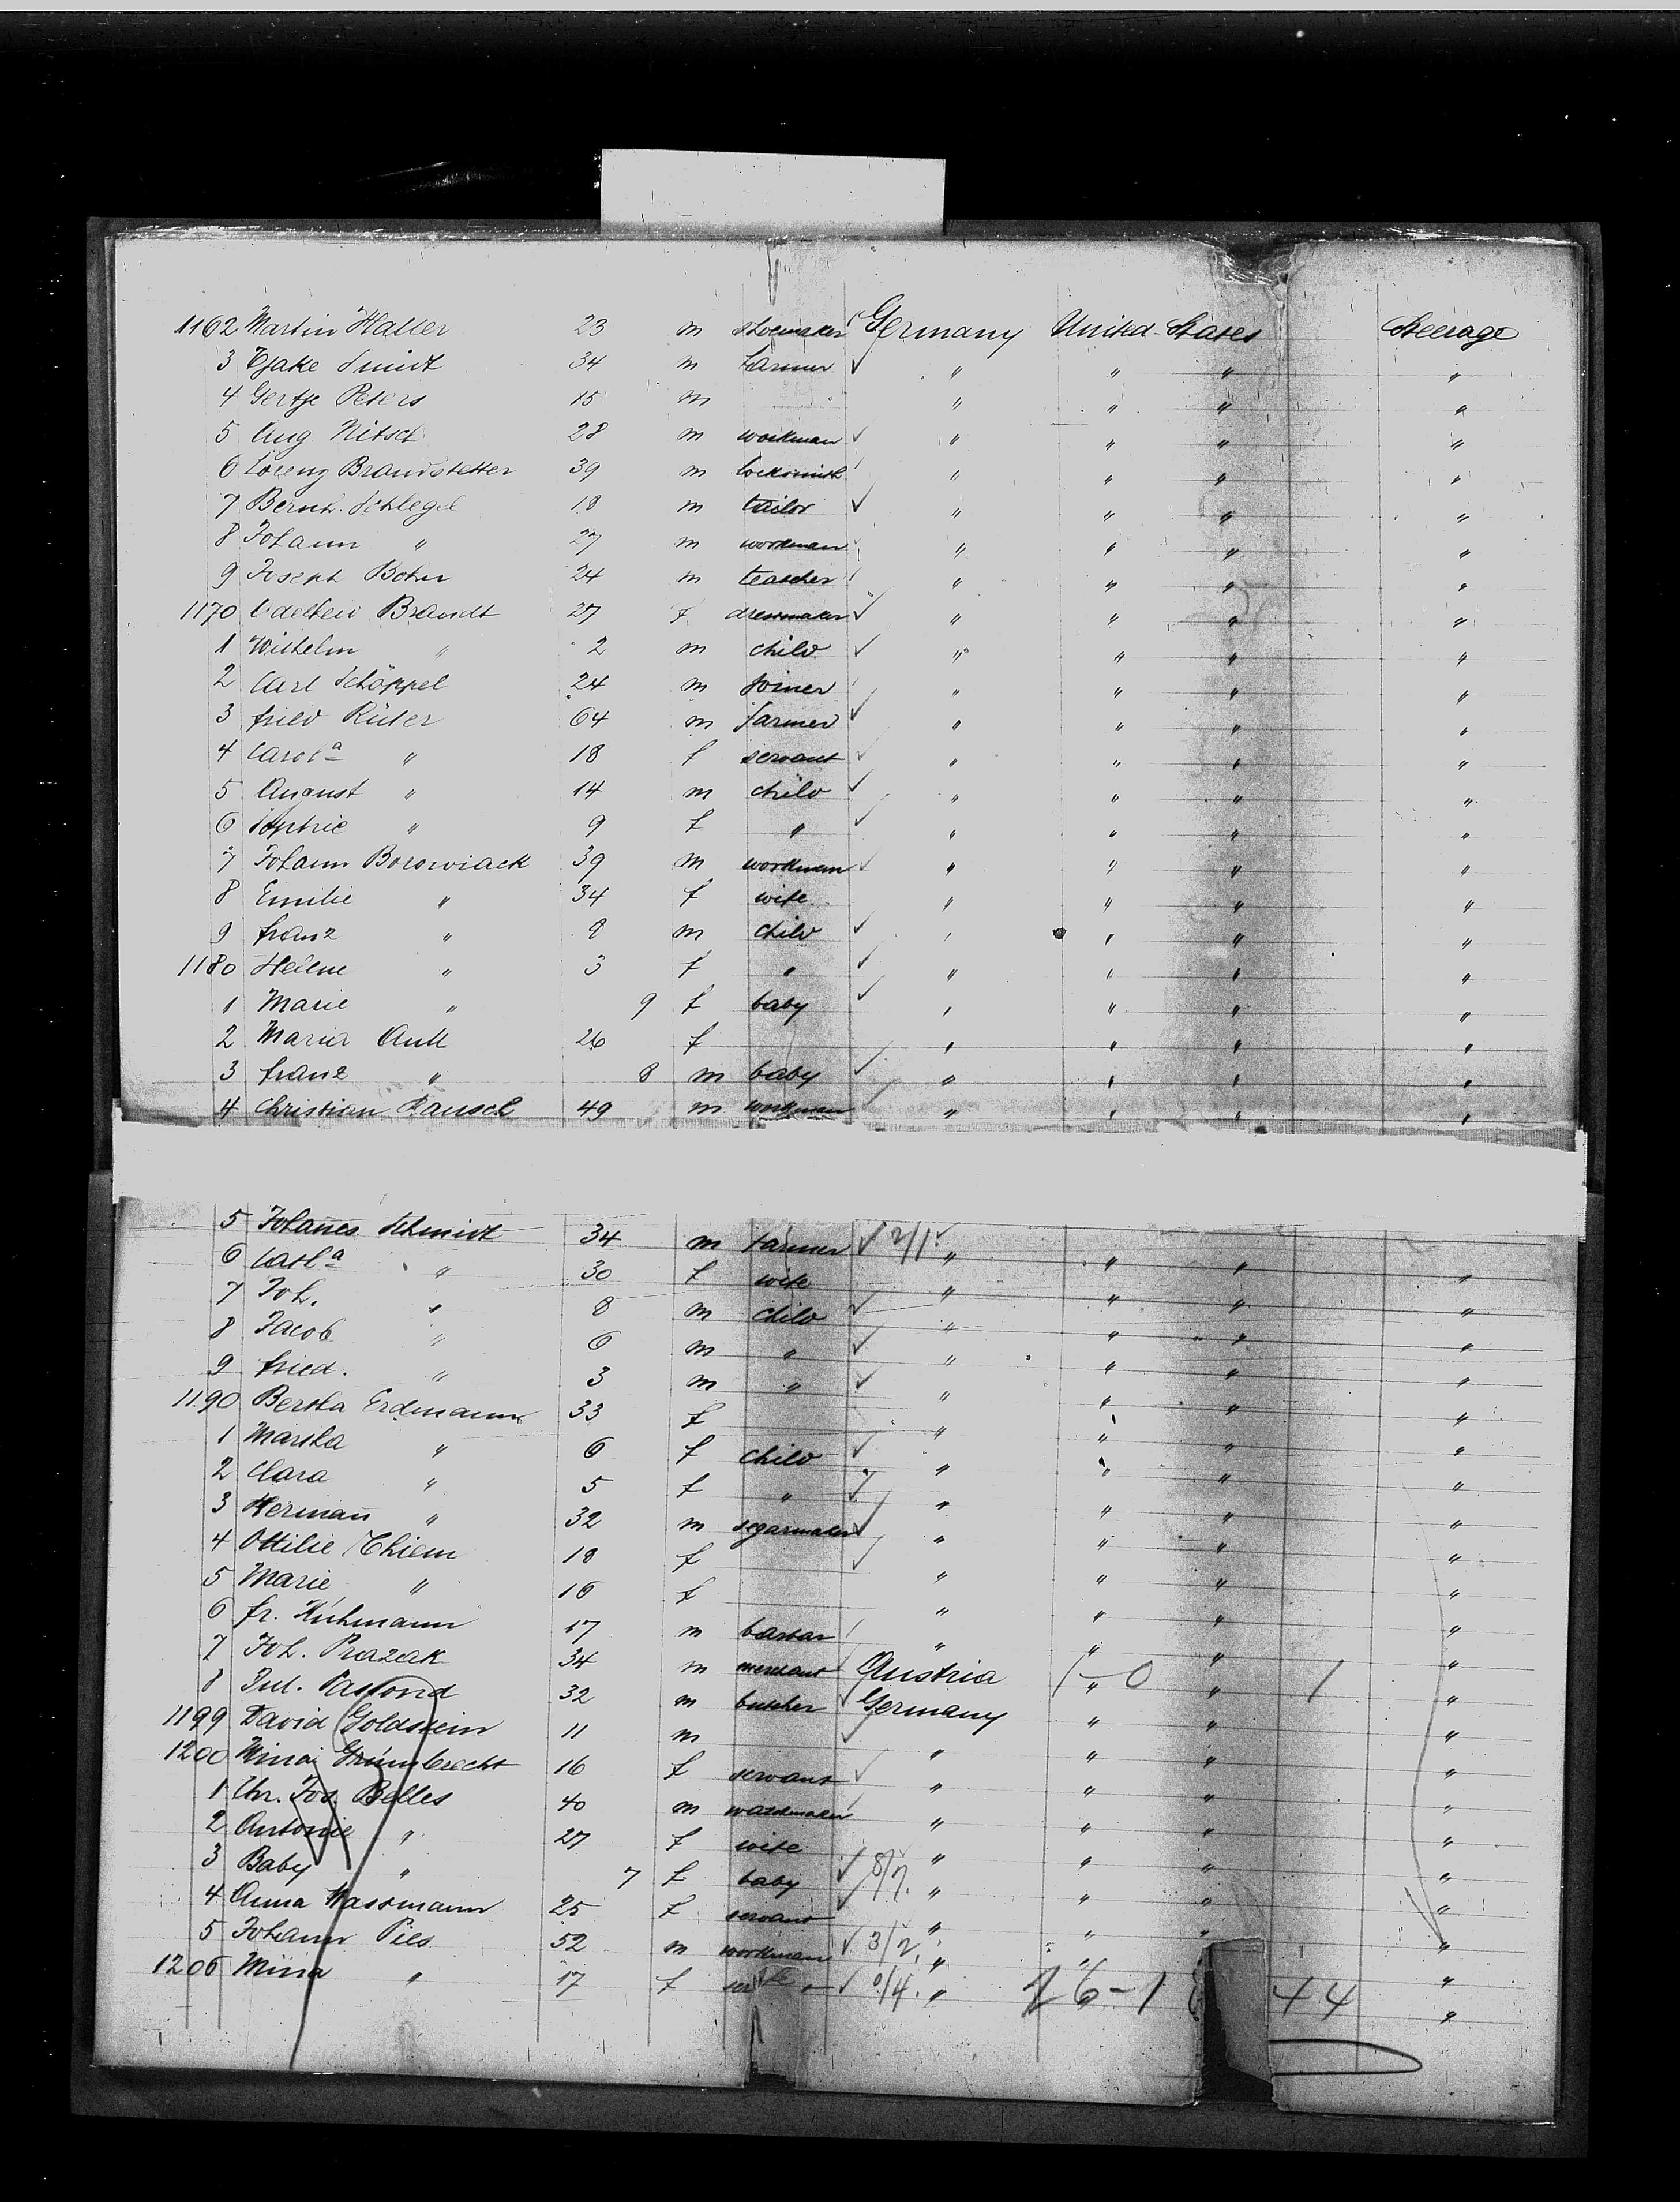 1162 Martin Haller 23 m shoemaker Germany United States Steerage
3 Tjake Smidt 34 m farmer " " " "
4 Gertje Peters 15 m " " " "
5 Aug Nitsch 28 m workman " " " "
6 Lorenz Brandstetter 39 m locksmith " " " "
7 Bernh. Schlegel 18 m tailor " " " "
8 Johann " 27 m workman " " " "
9 Joseph Bohn 24 m teascher " " " "
1170 Brandt 27 f dressmaker " " " "
1 Wilhelm " 2 m child " " " "
2 Carl Schöppel 24 m joiner " " " "
3 fried Rüter 64 m farmer " " " "
4 Carola " 18 f servant " " " "
5 August " 14 m child " " " "
6 Sophie " 9 f " " " " "
7 Johann Borowiack 39 m workman " " " "
8 Emilie " 34 f wife " " " "
9 franz " 8 m child " " " "
1180 Helene " 3 f " " " " "
1 Marie " 9 f baby " " " "
2 Maria 26 f " " " "
3 franz " 8 m baby " " " "
4 Christian Rausch 49 m workman " " " "
5 Johanes Schmidt 34 m farmer 2/1 " " " "
6 Catha " 30 f wife " " " "
7 Joh. " 8 m child " " " "
8 Jacob " 6 m " " " " "
9 fried. " 3 m " " " " "
1190 Bertha Erdmann 33 f " " " "
1 Martha " 6 f child " " " "
2 Clara " 5 f " " " " "
3 Herman " 32 m segarmaker " " " "
4 Ottilie Thiem 18 f " " " "
5 Marie " 16 f " " " "
6 fr. Kuhmann 17 m barbar " " " "
7 Joh. Prazak 34 m merchant Austria 1-0 " " 1 "
8 Jul. 32 m butcher Germany " " "
1199 David Goldstein 11 m " " " "
1200 Mina Grumbrecht 16 f servant " " " "
1 Chr. Jos. Belles 40 m watchmaker " " " "
2 Antonie " 27 f wife " " " "
3 Baby " 7 f baby 8/7. " " " "
4 Anna Wassmann 25 f servant " " " "
5 Johann Pies 52 m workman 3/2. " " " "
1206 Mina " 17 f 0/4. " 26-1 44 "